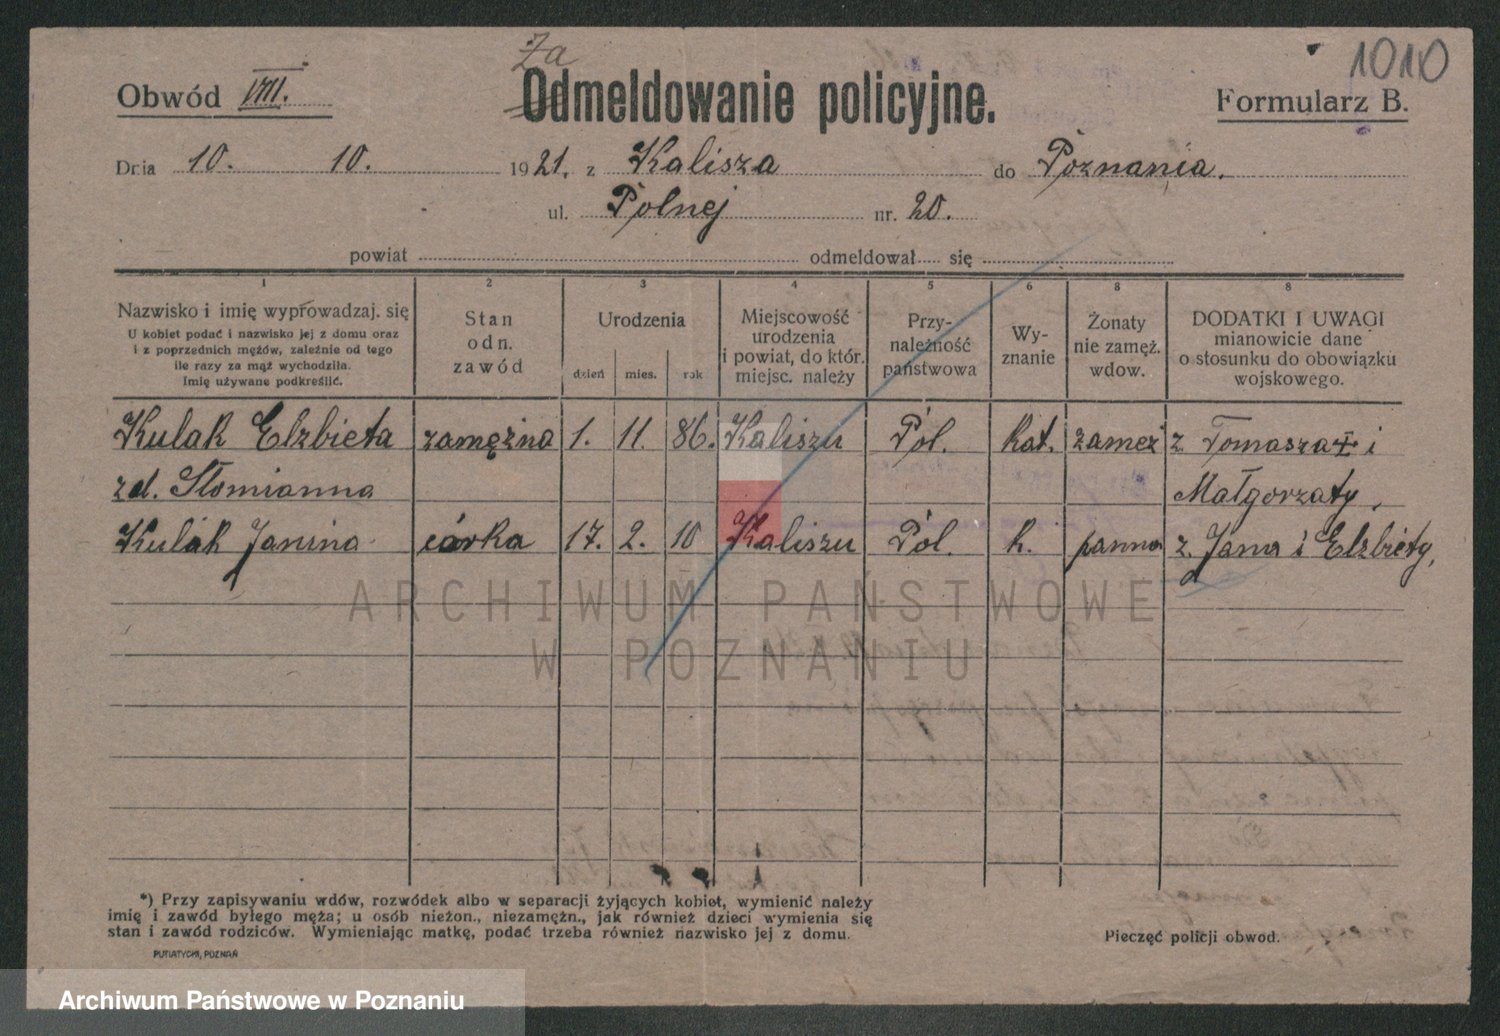 Za
1010
Obwód VIII.
Odmeldowanie policyjne.
Formularz B.
Dnia 10. 10. 1921. z Kalisza do Poznania.
ul. Polnej nr. 20.
powiat odmeldował się
1 2 3 4 5 6 8 8
Nazwisko i imię wyprowadzaj. się
U kobiet podać i nazwisko jej z domu oraz
i z poprzednich mężów, zależnie od tego
ile razy za mąż wychodziła.
Imię używane podkreślić.
Stan
odn.
zawód
Urodzenia
dzień mies. rok
Miejscowość
urodzenia
i powiat, do któr.
miejsc. należy
Przy-
należność
państwowa
Wy-
znanie
Żonaty
nie zamęż.
wdow.
DODATKI I UWAGI
mianowicie dane
o stosunku do obowiązku
wojskowego.
Kulak Elzbieta zamężna 1. 11. 86. Kaliszu Pol. kat. zamęż z Tomasza i
zd. Słomianna Małgorzaty,
Kulak Janina córka 17. 2. 10 Kaliszu Pol. k. panna z. Jana i Elzbiety,
ARCHIWUM PAŃSTWOWE
W POZNANIU
*) Przy zapisywaniu wdów, rozwódek albo w separacji żyjących kobiet, wymienić należy
imię i zawód byłego męża; u osób nieżon., niezamężn., jak również dzieci wymienia się
stan i zawód rodziców. Wymieniając matkę, podać trzeba również nazwisko jej z domu.
PUTIATYCKI, POZNAŃ
Pieczęć policji obwod.
Archiwum Państwowe w Poznaniu